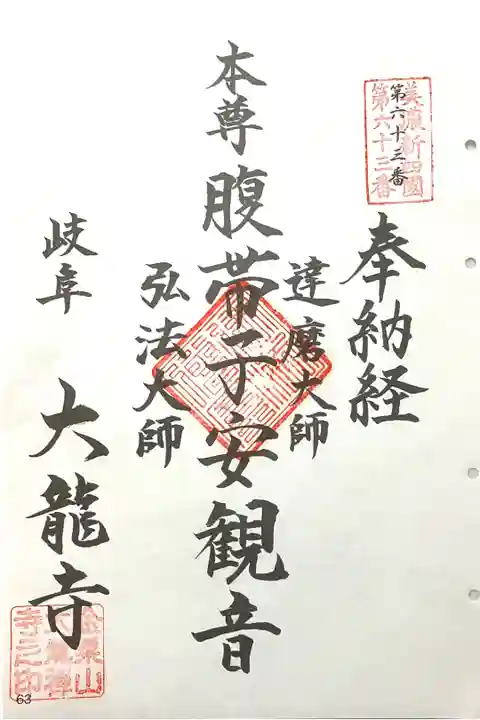 美濃新四國
第六十三番
第六十三番
奉納経
達磨大師
本尊腹帯子安観音
弘法大師
岐阜
大龍寺
63